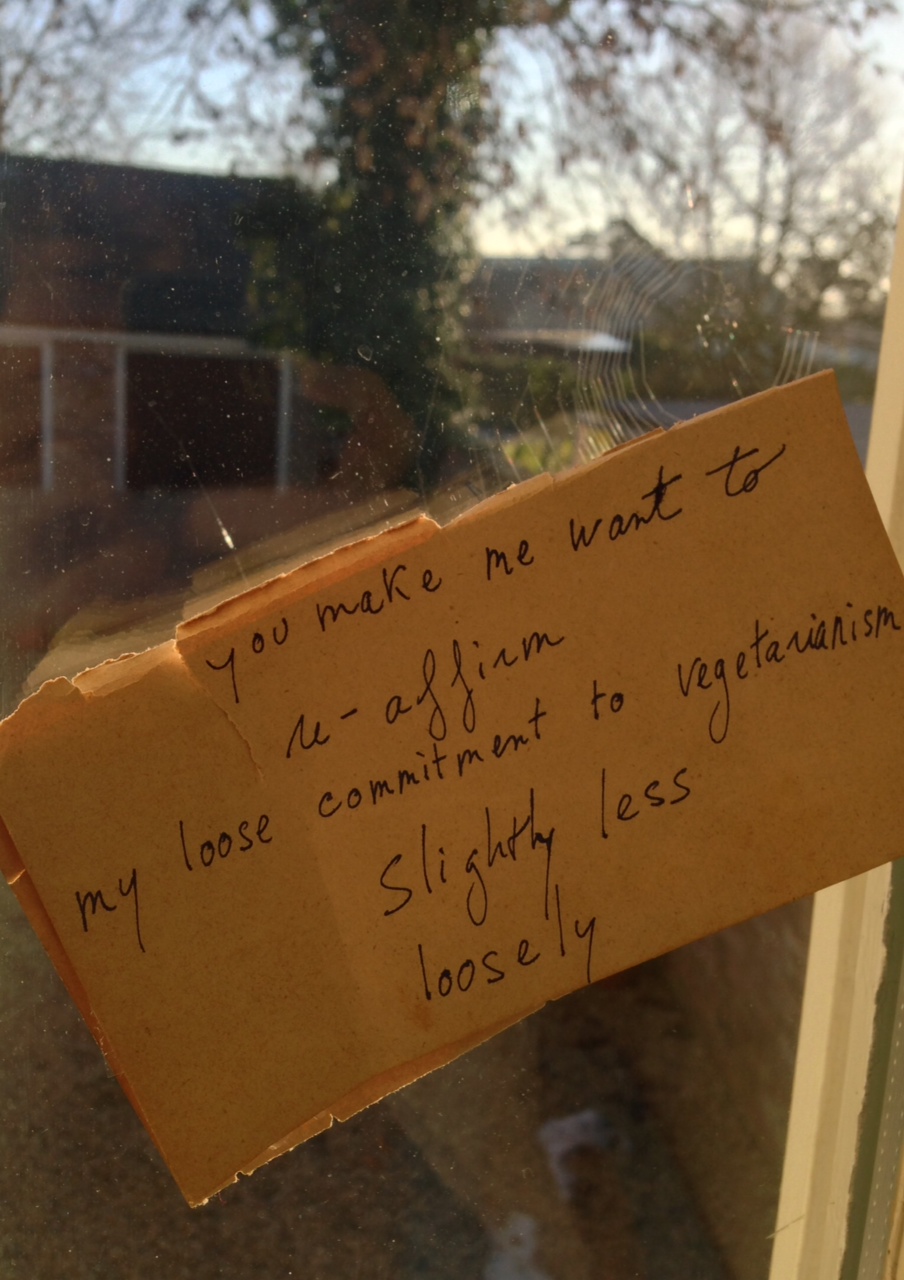 you make me want to
re-affirm
my loose commitment to vegetarianism
Slightly less
loosely